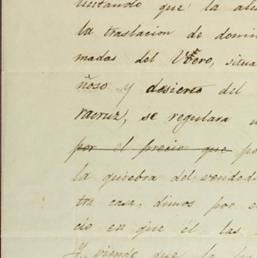 untando que la ale
la traslacion de domin
madas del Uvero, situa
ñoso y desierto del
racruz, se regulara
por el precio que po
la quiebra del vended
tra casa, dimos por e
cio en que él las
Y viendo que la